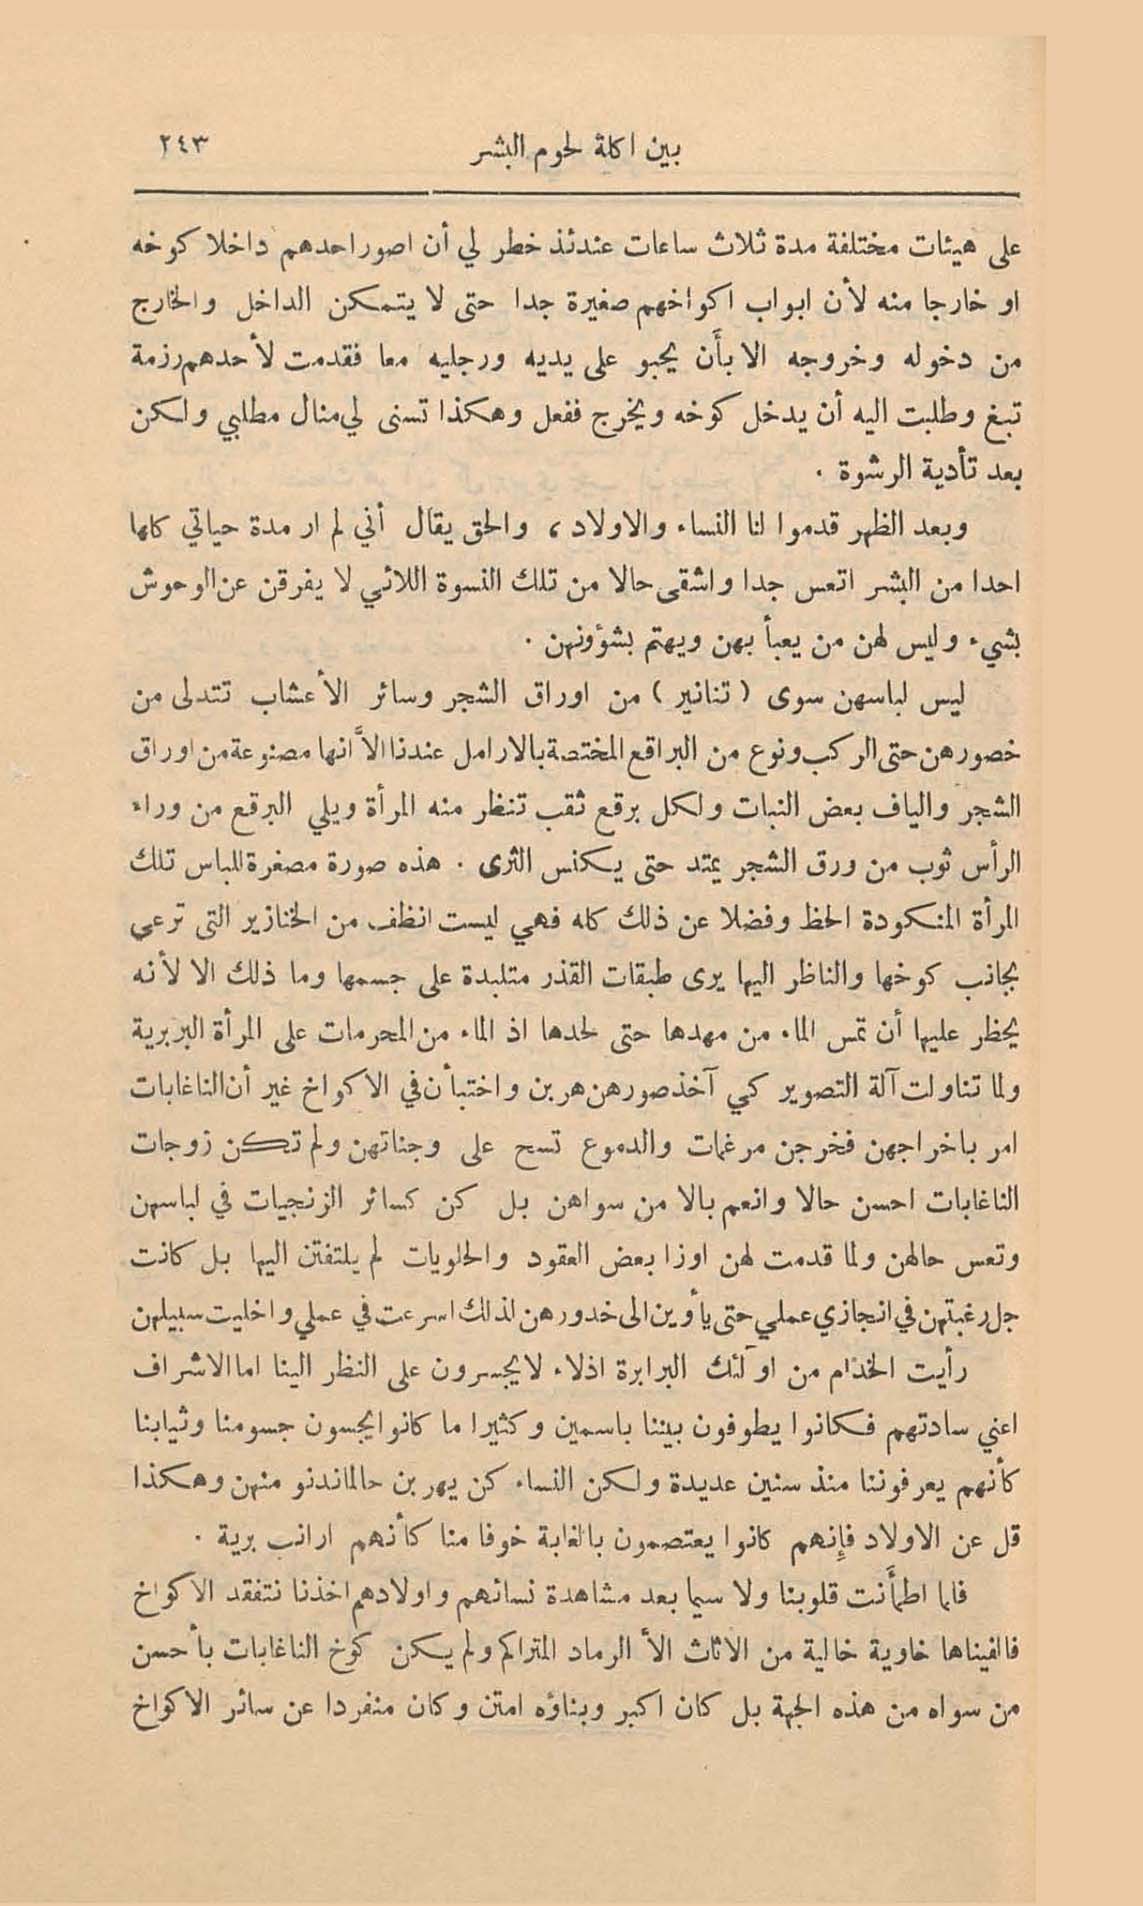 بين اكلة لحوم البشر ٢٤٣
على هيئات مختلفة مدة ثلاث ساعات عندئذ خطر لي أن اصور احدهم داخلا كوخه
او خارجا منه لأن ابواب اكواخهم صغيرة جدا حتى لا يتمكن الداخل والخارج
من دخوله وخروجه الا بأَن يحبو على يديه ورجليه معا فقدمت لأحدهم رزمة
تبغ وطلبت اليه أن يدخل كوخه ويخرج ففعل وهكذا تسنى لي منال مطلبي ولكن
بعد تأدية الرشوة .
وبعد الظهر قدموا لنا النساء والاولاد ، والحق يقال أني لم ار مدة حياتي كلها
احدا من البشر اتعس جدا واشقى حالا من تلك النسوة اللائي لا يفرقن عن الوحوش
بشيء وليس لهن من يعبأ بهن ويهتم بشؤونهن .
ليس لباسهن سوى ( تنانير ) من اوراق الشجر وسائر الأعشاب تتدلى من
خصورهن حتى الركب ونوع من البراقع المختصة بالارامل عندنا الاَّ انها مصنوعة من اوراق
الشجر والياف بعض النبات ولكل برقع ثقب تنظر منه المرأة ويلي البرقع من وراء
الرأس ثوب من ورق الشجر يمتد حتى يكنس الثرى . هذه صورة مصغرة للباس تلك
المرأة المنكودة الحظ وفضلا عن ذلك كله فهي ليست انظف من الخنازير التي ترعى
بجانب كوخها والناظر اليها يرى طبقات القذر متلبدة على جسمها وما ذلك الا لأنه
يحظر عليها أن تمس الماء من مهدها حتى لحدها اذ الماء من المحرمات على المرأة البربرية
ولما تناولت آلة التصوير كي آخذ صورهن هربن واختبأن في الاكواخ غير أن الناغابات
امر باخراجهن فخرجن مرغمات والدموع تسح على وجناتهن ولم تكن زوجات
الناغابات احسن حالا وانعم بالا من سواهن بل كن كسائر الزنجيات في لباسهن
وتعس حالهن ولما قدمت لهن اوزا بعض العقود والحلويات لم يلتفتن اليها بل كانت
جل رغبتهن في انجازي عملي حتى يأوين الى خدورهن لذلك اسرعت في عملي واخليت سبيلهن
رأيت الخدام من اولئك البرابرة اذلاء لا يجسرون على النظر الينا اما الاشراف
اعني سادتهم فكانوا يطوفون بيننا باسمين وكثيرا ما كانوا يجسون جسومنا وثيابنا
كأنهم يعرفوننا منذ سنين عديدة ولكن النساء كن يهربن حالما ندنو منهن وهكذا
قل عن الاولاد فإنهم كانوا يعتصمون بالغابة خوفا منا كأنهم ارانب برية .
فلما اطمأَنت قلوبنا ولا سيما بعد مشاهدة نسائهم واولادهم اخذنا نتفقد الاكواخ
فالفيناها خاوية خالية من الاثاث الأ الرماد المتراكم ولم يكن كوخ الناغابات بأحسن
من سواه من هذه الجهة بل كان اكبر وبناؤه امتن وكان منفردا عن سائر الاكواخ